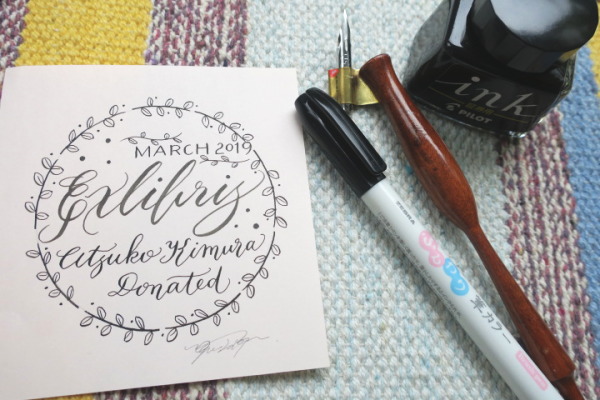 MARCH 2019
Exlibris
Atsuko Kimura
Donated
ink
PILOT
ZEBRA